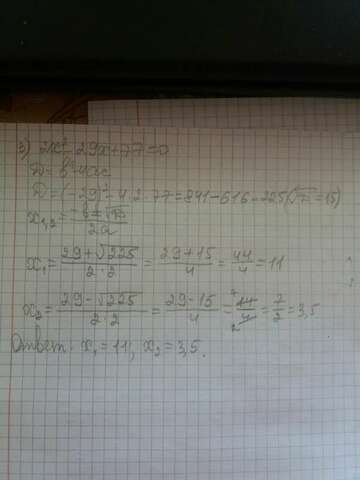 3) 2x²-29x+77=0
D=b²-4ac
D=(-29)²-4·2·77=841-616=225(√D=15)
x₁,₂=(-b±√D)/2a
x₁=(29+√225)/(2·2)=(29+15)/4=44/4=11
x₂=(29-√225)/(2·2)=(29-15)/4=14/4=7/2=3,5
Ответ: x₁=11, x₂=3,5.